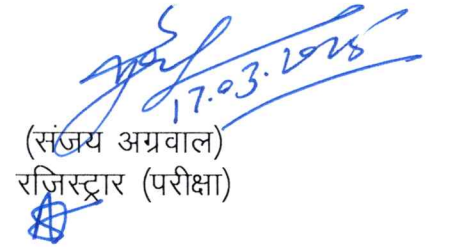 17.03.2025
(संजय अग्रवाल)
रजिस्ट्रार (परीक्षा)